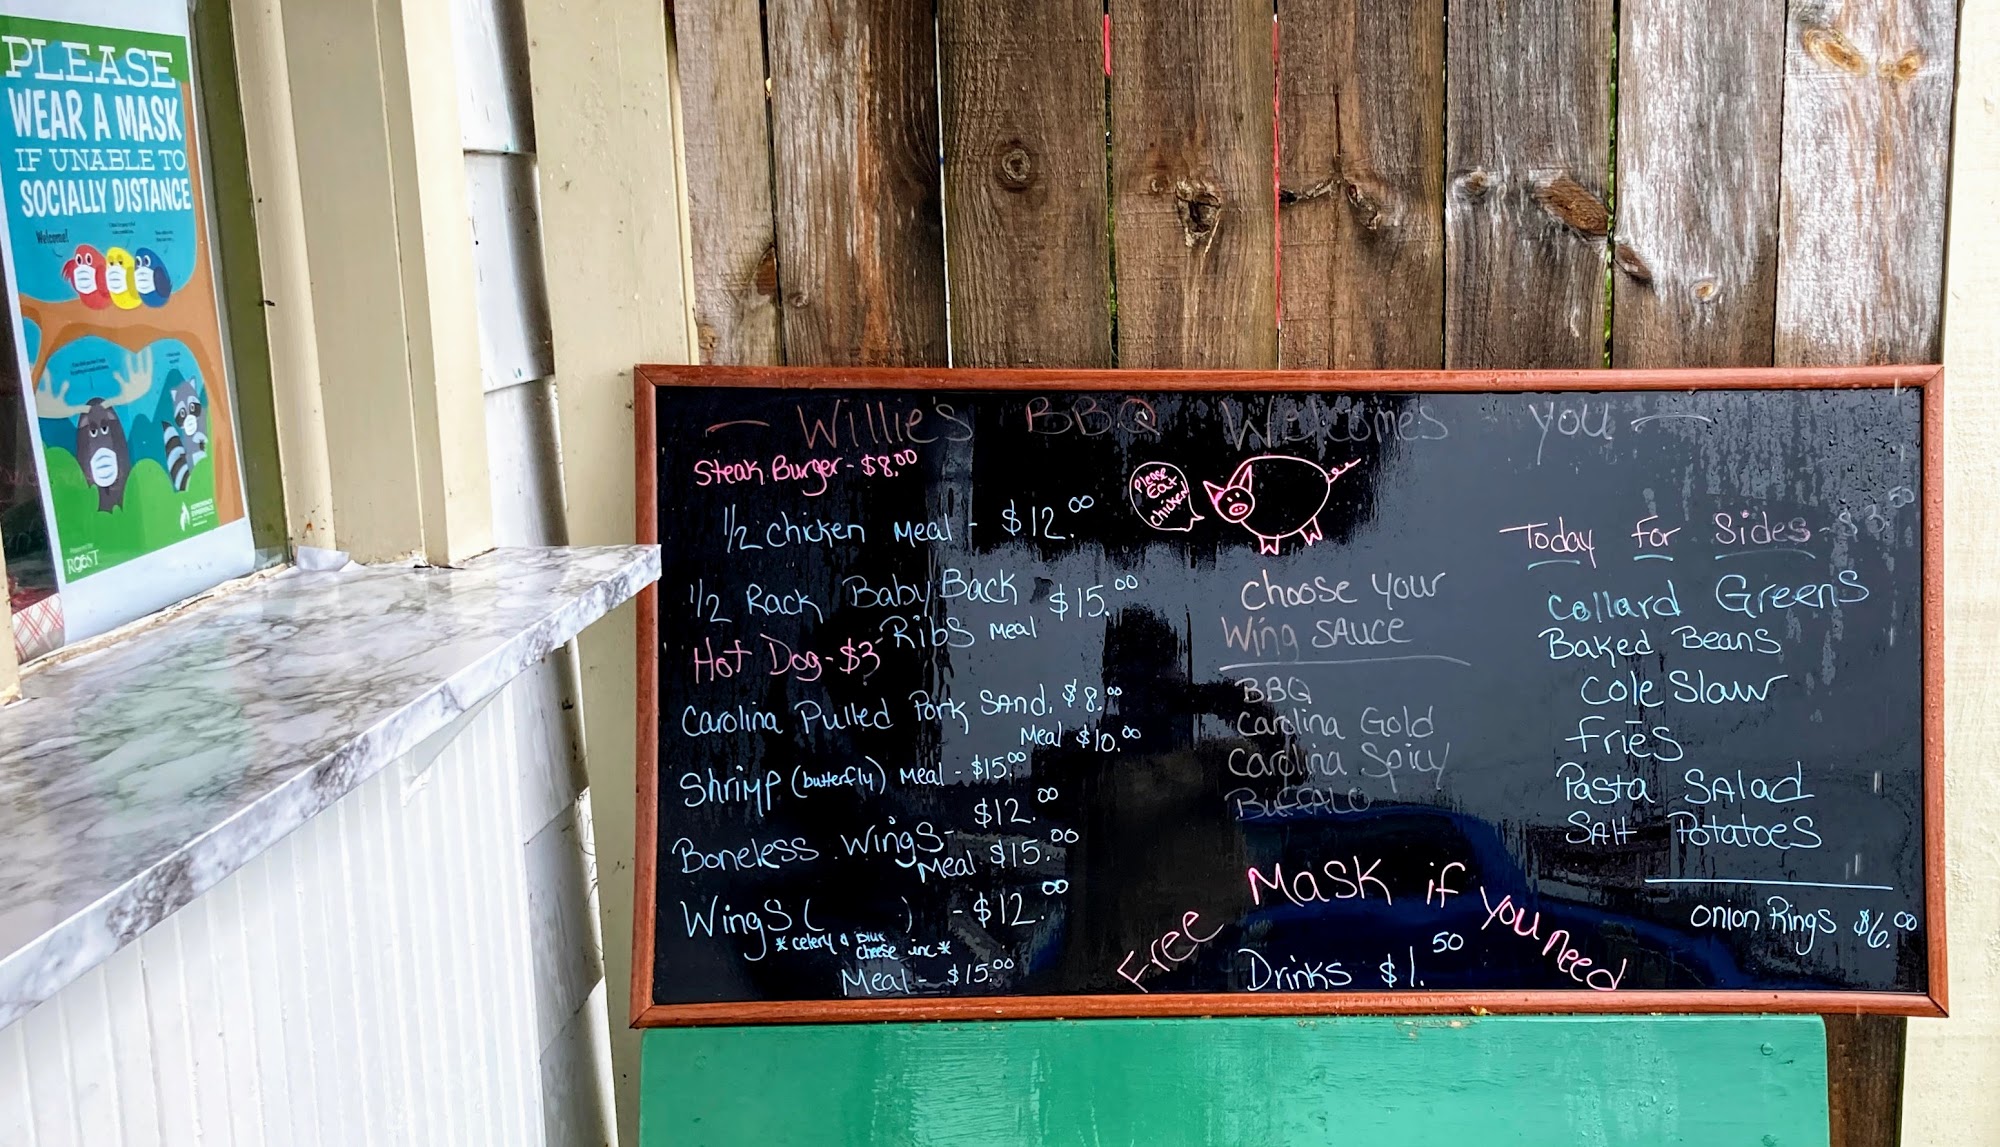 PLEASE
WEAR A MASK
IF UNABLE TO
SOCIALLY DISTANCE
Welcome!
ROOST
— Willie's BBQ Welcomes you —
Steak Burger - $8.00
1/2 chicken Meal - $12.00
1/2 Rack BabyBack $15.00
Ribs Meal
Hot Dog - $3
Carolina Pulled Pork SAnd. $8.00
Meal $10.00
Shrimp (butterfly) Meal - $15.00
Boneless Wings - $12.00
Meal $15.00
Wings ( ) - $12.00
*celery & blue
cheese inc*
Meal - $15.00
Please
Eat
Chicken!
Choose your
Wing SAuce
BBQ
Carolina Gold
Carolina Spicy
BuffALO
Free MASK if you need
Drinks $1.50
Today For Sides - $3.50
Collard Greens
Baked Beans
Cole Slaw
Fries
Pasta SAlad
SAlt Potatoes
Onion Rings $6.00